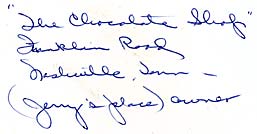 "The Chocolate Shop"
Franklin Road
Nashville, Tenn –
(Jerry's place) owner